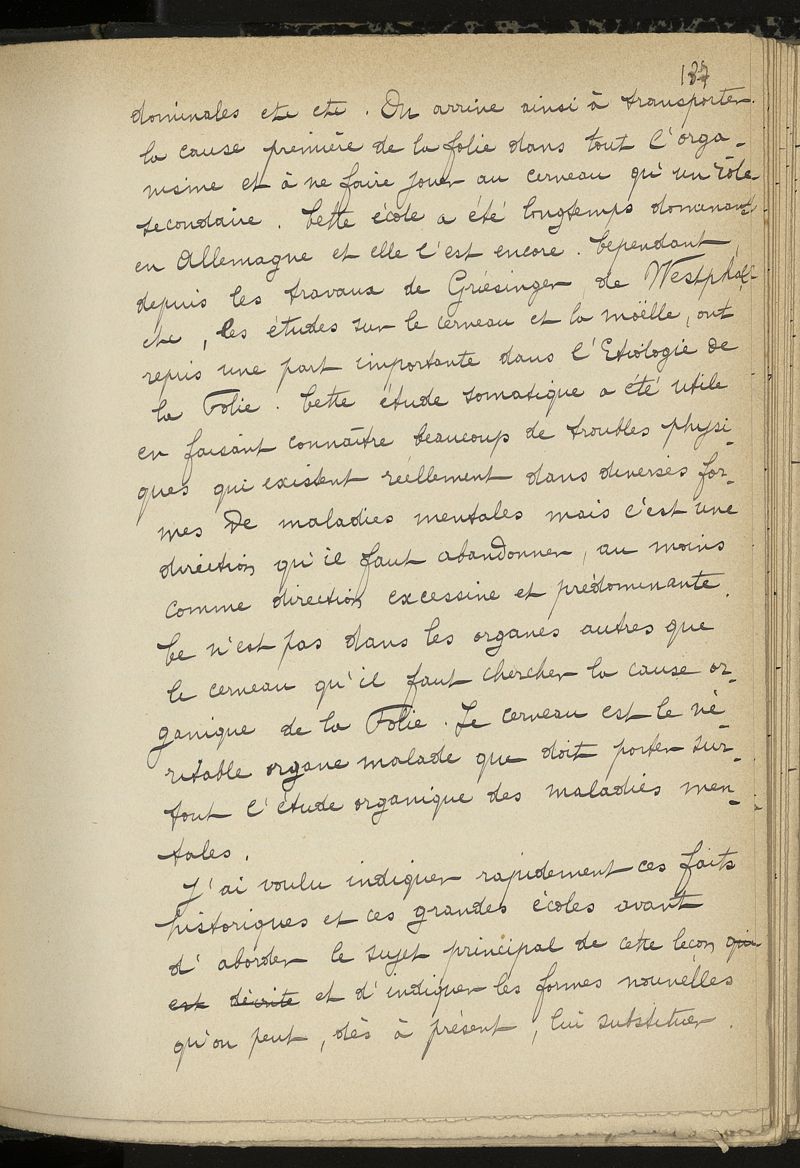 137
dominales etc etc. On arrive ainsi à transporter
la cause première de la folie dans tout l'orga-
nisme et à ne faire jouer au cerveau qu'un rôle
secondaire. Cette école a été longtemps dominante
en Allemagne et elle l'est encore. Cependant,
depuis les travaux de Griésinger, de Westphall
etc, les études sur le cerveau et la moëlle, ont
repris une part importante dans l'Etiologie de
la Folie. Cette étude somatique a été utile
en faisant connaître beaucoup de troubles physi-
ques qui existent réellement dans diverses for-
mes de maladies mentales mais c'est une
direction qu'il faut abandonner, au moins
comme direction excessive et prédominante.
Ce n'est pas dans les organes autres que
le cerveau qu'il faut chercher la cause or-
ganique de la Folie. Le cerveau est le vé-
ritable organe malade que doit porter sur-
tout l'étude organique des maladies men-
tales.
J'ai voulu indiquer rapidement ces faits
historiques et ces grandes écoles avant
d'aborder le sujet principal de cette leçon qui
est décrite et d'indiquer les formes nouvelles
qu'on peut, dès à présent, lui substituer.